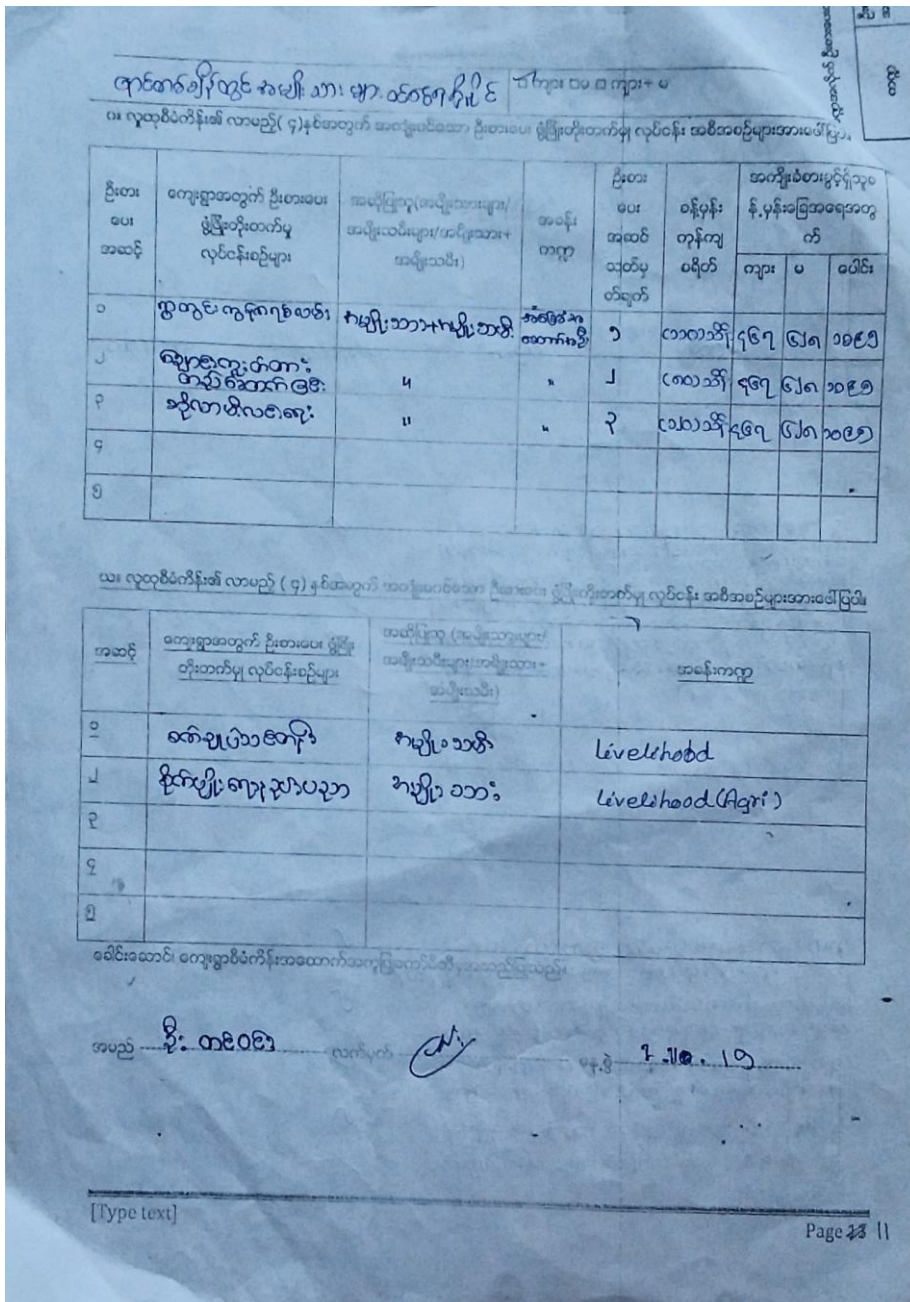 ဂ။ လူထုစီမံကိန်း၏ လာမည့်( ၄)နှစ်အတွက် အကျုံးဝင်သော ဦးစားပေး ဖွံ့ဖြိုးတိုးတက်မှု လုပ်ငန်း အစီအစဉ်များအားဖေါ်ပြပါ။
ဦးစားပေးအဆင့် ကျေးရွာအတွက် ဦးစားပေး ဖွံ့ဖြိုးတိုးတက်မှု လုပ်ငန်းစဉ်များ အဆိုပြုသူ(အမျိုးသားများ/အမျိုးသမီးများ/အမျိုးသား+အမျိုးသမီး) အခန်းကဏ္ဍ ဦးစားပေးအဆင်သတ်မှတ်ချက် ခန့်မှန်းကုန်ကျစရိတ် အကျိုးခံစားခွင့်ရှိသူခန့်မှန်းခြေအရေအတွက်
ကျား မ ပေါင်း
၁ ရွာတွင်းကွန်ကရစ်လမ်း အမျိုးသား+အမျိုးသမီး ၁ သိန်း ၄၆၇ ၆၂၈ ၁၀၉၅
၂ တည်ဆောက်ခြင်း " " ၂ သိန်း ၄၆၇ ၆၂၈ ၁၀၉၅
၃ ဆိုလာမီးလင်းရေး " " ၃ သိန်း ၄၆၇ ၆၂၈ ၁၀၉၅
၄
၅
ဃ။ လူထုစီမံကိန်း၏ လာမည့် ( ၄) နှစ်အတွက် အကျုံးမဝင်သော ဦးစားပေး ဖွံ့ဖြိုးတိုးတက်မှု လုပ်ငန်း အစီအစဉ်များအားဖေါ်ပြပါ။
အဆင့် ကျေးရွာအတွက် ဦးစားပေး ဖွံ့ဖြိုးတိုးတက်မှု လုပ်ငန်းစဉ်များ အဆိုပြုသူ (အမျိုးသားများ/အမျိုးသမီးများ/အမျိုးသား+အမျိုးသမီး) အခန်းကဏ္ဍ
၁ စက်ချုပ်သင်တန်း အမျိုးသမီး Livelihood
၂ စိုက်ပျိုးရေးနည်းပညာ အမျိုးသား Livelihood(Agri)
၃
၄
၅
ခေါင်းဆောင်၊ ကျေးရွာစီမံကိန်းအထောက်အကူပြုကော်မတီမှအတည်ပြုသည်။
အမည် ဦး လက်မှတ် နေ့စွဲ
[Type text]
Page 11